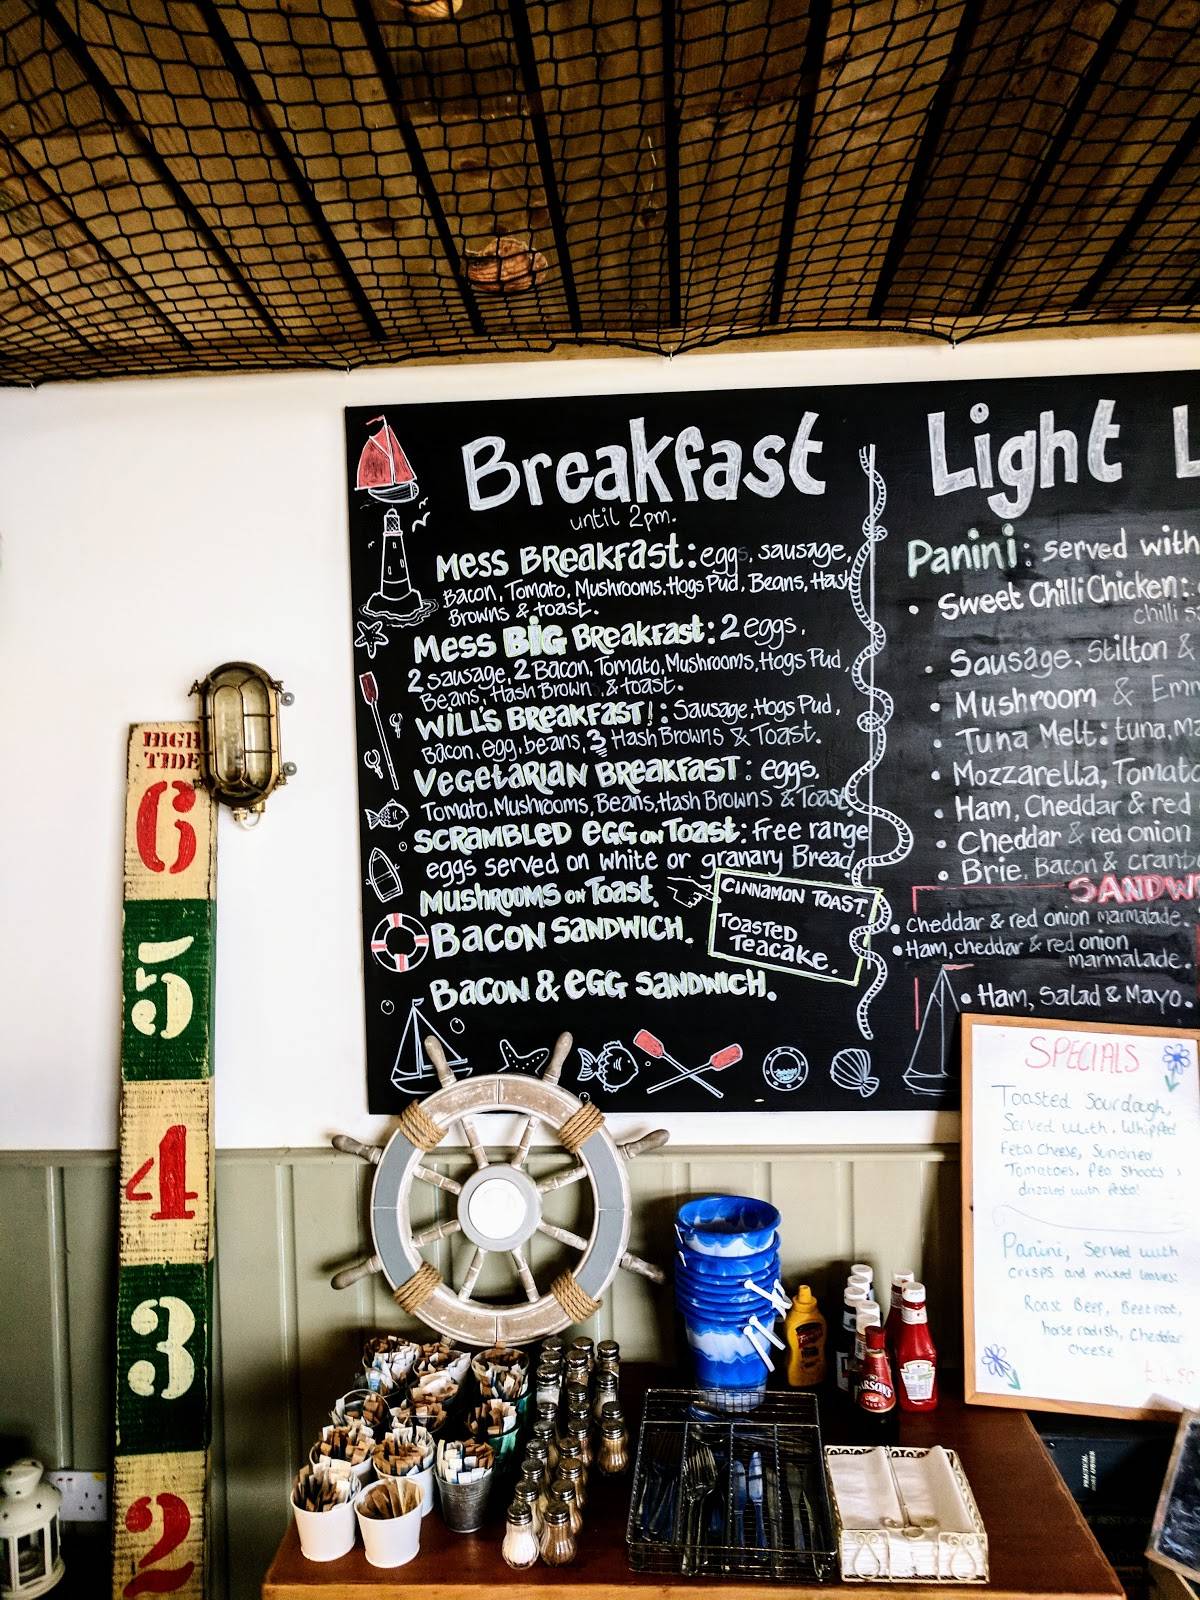 Breakfast
until 2pm.
Mess Breakfast: eggs, sausage,
Bacon, Tomato, Mushrooms, Hogs Pud, Beans, Hash
Browns & toast.
Mess BIG Breakfast: 2 eggs,
2 sausage, 2 Bacon, Tomato, Mushrooms, Hogs Pud,
Beans, Hash Brown & toast.
WILL'S BREAKFAST!: Sausage, Hogs Pud,
Bacon, egg, beans, 3 Hash Browns & Toast.
VEGETARIAN BREAKFAST: eggs,
Tomato, Mushrooms, Beans, Hash Browns & Toast.
SCRAMBLED EGG on Toast: Free range
eggs served on white or granary Bread.
MUSHROOMS on Toast.
BACON SANDWICH.
BACON & EGG SANDWICH.
CINNAMON TOAST.
TOASTED
TEACAKE.
Light L
Panini: served with
• Sweet Chilli Chicken:
chilli s
• Sausage, Stilton &
• Mushroom & Emm
• Tuna Melt: tuna, ma
• Mozzarella, Tomato
• Ham, Cheddar & red
• Cheddar & red onion
• Brie, Bacon & cranb
SANDW
• Cheddar & red onion marmalade.
• Ham, cheddar & red onion
marmalade.
• Ham, Salad & Mayo.
SPECIALS
Toasted Sourdough,
Served with, Whipped
Feta Cheese, Sundried
Tomatoes, Pea Shoots,
drizzled with Pesto!
Panini, Served with
crisps and mixed leaves:
Roast Beef, Beetroot,
horseradish, Cheddar
cheese
HIGH
TIDE
6
5
4
3
2